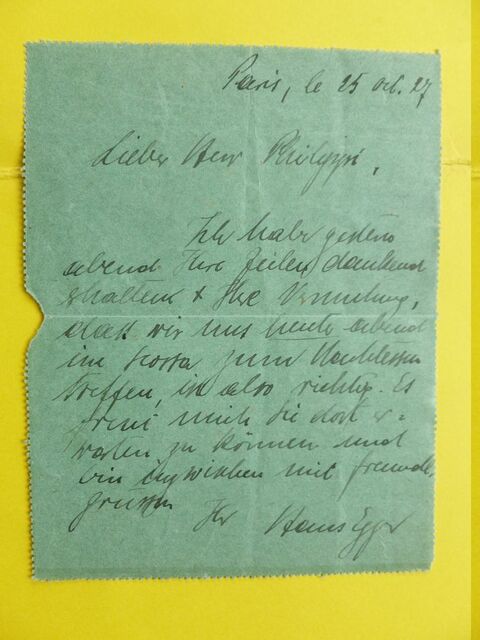 Paris, le 25 oct. 27
Lieber Herr Philippi,
Ich habe gestern
abend Ihre Zeilen dankend
erhalten + Ihre Vermutung,
dass wir uns heute abend
im zum Nachtessen
treffen, ist also richtig. Es
freut mich Sie dort er-
warten zu können und
bin inzwischen mit freundl.
grüssen
Ihr Hans Egger